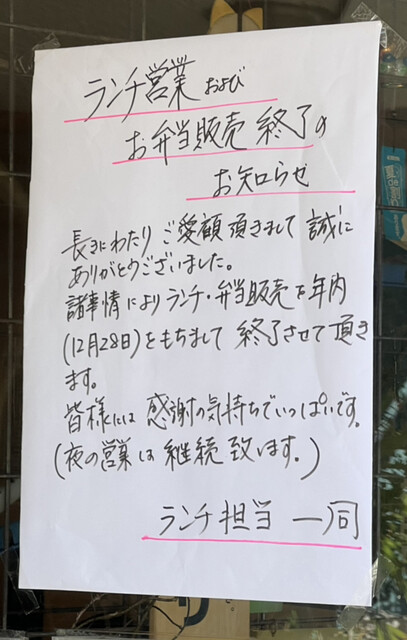 ランチ営業および
お弁当販売終了の
お知らせ
長きにわたりご愛顧頂きまして誠に
ありがとうございました。
諸事情によりランチ・弁当販売を年内
(12月28日)をもちまして終了させて頂き
ます。
皆様には感謝の気持ちでいっぱいです。
(夜の営業は継続致します。)
ランチ担当一同